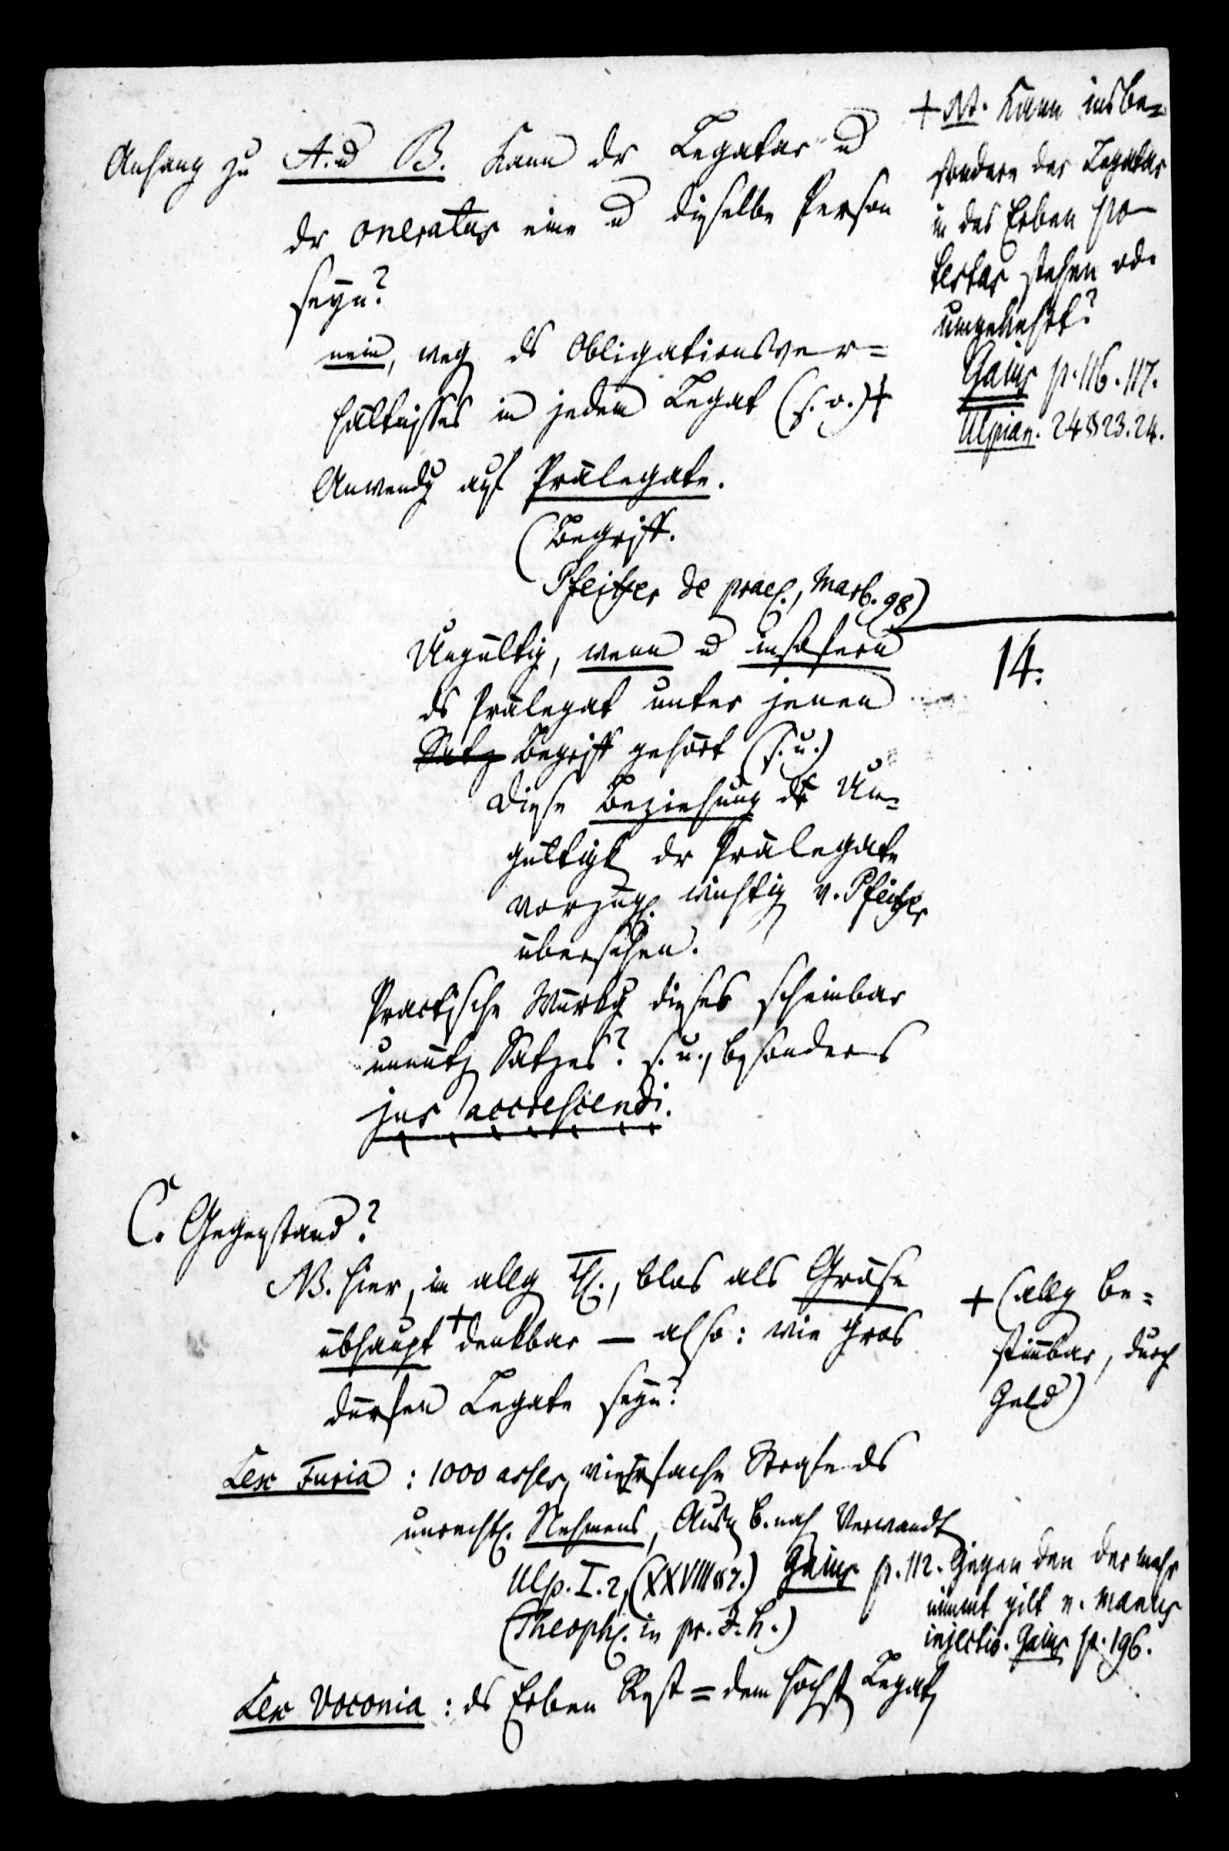 Anhang zu A. u B. Kann dr Legatar u
dr oneratus eine u dieselbe Person
seyn?
nein, weg ds Obligationsver=
hältnisses in jedem Legat (s. o.) +
Anwendg auf Prälegate.
(Begriff.
Pfeiffer de prael., Marb. 98)
Ungültig, wenn u insofern
ds Prälegat unter jenen
Satz Begriff gehört (s. u.)
Diese Beziehung dr Un=
gültigk dr Prälegate
vorzügl. wichtig v. Pfeiffer
übersehen.
Practische Würkg dieses scheinbar
unnütz Satzes? s. u., besonders
jus accrescendi.
+ Nt. Kann insbe=
sondere der Legatar
in des Erben po
testas stehen od.
umgekehrt?
Gaius p. 116. 117.
Ulpian. 24 § 23. 24.
14.
C. Gegenstand?
NB. hier, in allg Th., blos als Gröse
übhaupt + denkbar — also: wie gros
dürfen Legate seyn?
+ (allg be=
stimbar, durch
Geld)
Lex Furia : 1000 asses, vierfache Strafe ds
unrechtl. Nehmens, Ausn b. nah Verwandt
Ulp. I. 2, (XXVIII § 7.) Gaius p. 112. Gegen den der mehr
nimmt gilt e. manus
injectio. Gaius p. 196.
(Theoph. in pr. J. h.)
Lex Voconia : ds Erben Rest = dem höchst Legat